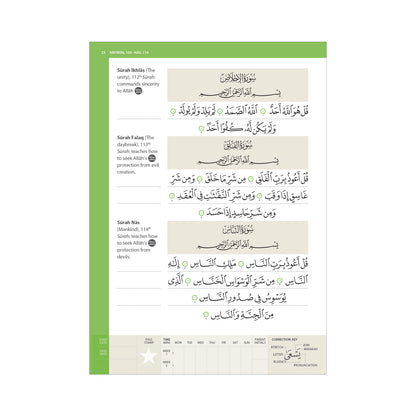 Sūrah Ikhlāṣ (The
unity), 112th Sūrah:
commands sincerity
to Allāh
سُورَةُ الْإِخْلَاصِ
بِسْمِ اللَّهِ الرَّحْمَٰنِ الرَّحِيمِ
قُلْ هُوَ اللَّهُ أَحَدٌ ۝ اللَّهُ الصَّمَدُ ۝ لَمْ يَلِدْ وَلَمْ يُولَدْ ۝
وَلَمْ يَكُن لَّهُ كُفُوًا أَحَدٌ ۝
Sūrah Falaq (The
daybreak), 113th
Sūrah: teaches how
to seek Allāh's
protection from evil
creation.
سُورَةُ الْفَلَقِ
بِسْمِ اللَّهِ الرَّحْمَٰنِ الرَّحِيمِ
قُلْ أَعُوذُ بِرَبِّ الْفَلَقِ ۝ مِن شَرِّ مَا خَلَقَ ۝ وَمِن شَرِّ
غَاسِقٍ إِذَا وَقَبَ ۝ وَمِن شَرِّ النَّفَّاثَاتِ فِي الْعُقَدِ ۝
وَمِن شَرِّ حَاسِدٍ إِذَا حَسَدَ ۝
Sūrah Nās
(Mankind), 114th
Sūrah: teaches how
to seek Allāh's
protection from
devils.
سُورَةُ النَّاسِ
بِسْمِ اللَّهِ الرَّحْمَٰنِ الرَّحِيمِ
قُلْ أَعُوذُ بِرَبِّ النَّاسِ ۝ مَلِكِ النَّاسِ ۝ إِلَٰهِ
النَّاسِ ۝ مِن شَرِّ الْوَسْوَاسِ الْخَنَّاسِ ۝ الَّذِي
يُوَسْوِسُ فِي صُدُورِ النَّاسِ ۝
مِنَ الْجِنَّةِ وَالنَّاسِ ۝
START DATE
STAR STAMP
TIME MON TUE WED THU FRI SAT SUN
PARENT INITIALS
CORRECTION KEY
STRETCH
LETTER
FLUENCY
PRONUNCIATION